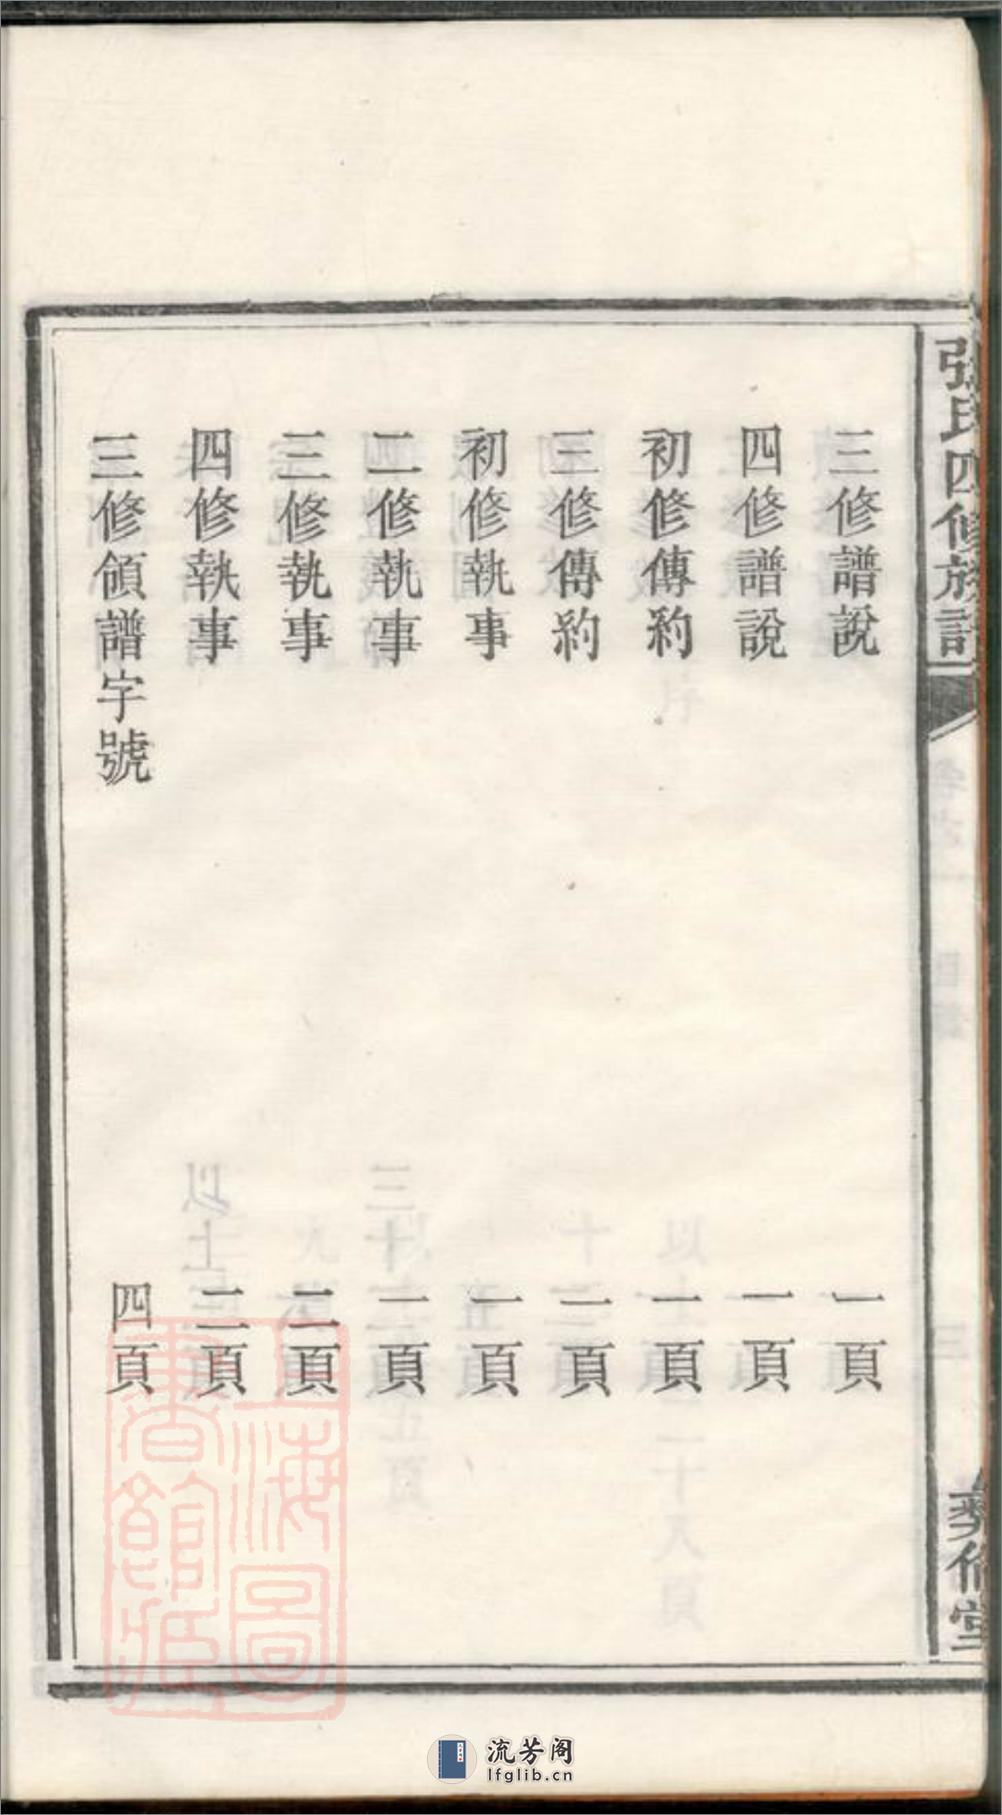 張氏四修族譜
三修譜說 一頁
四修譜說 一頁
初修傳約 一頁
三修傳約 二頁
初修執事 一頁
二修執事 一頁
三修執事 二頁
四修執事 二頁
三修領譜字號 四頁
彝倫堂
上海圖
書館藏
流芳阁
lfglib.cn